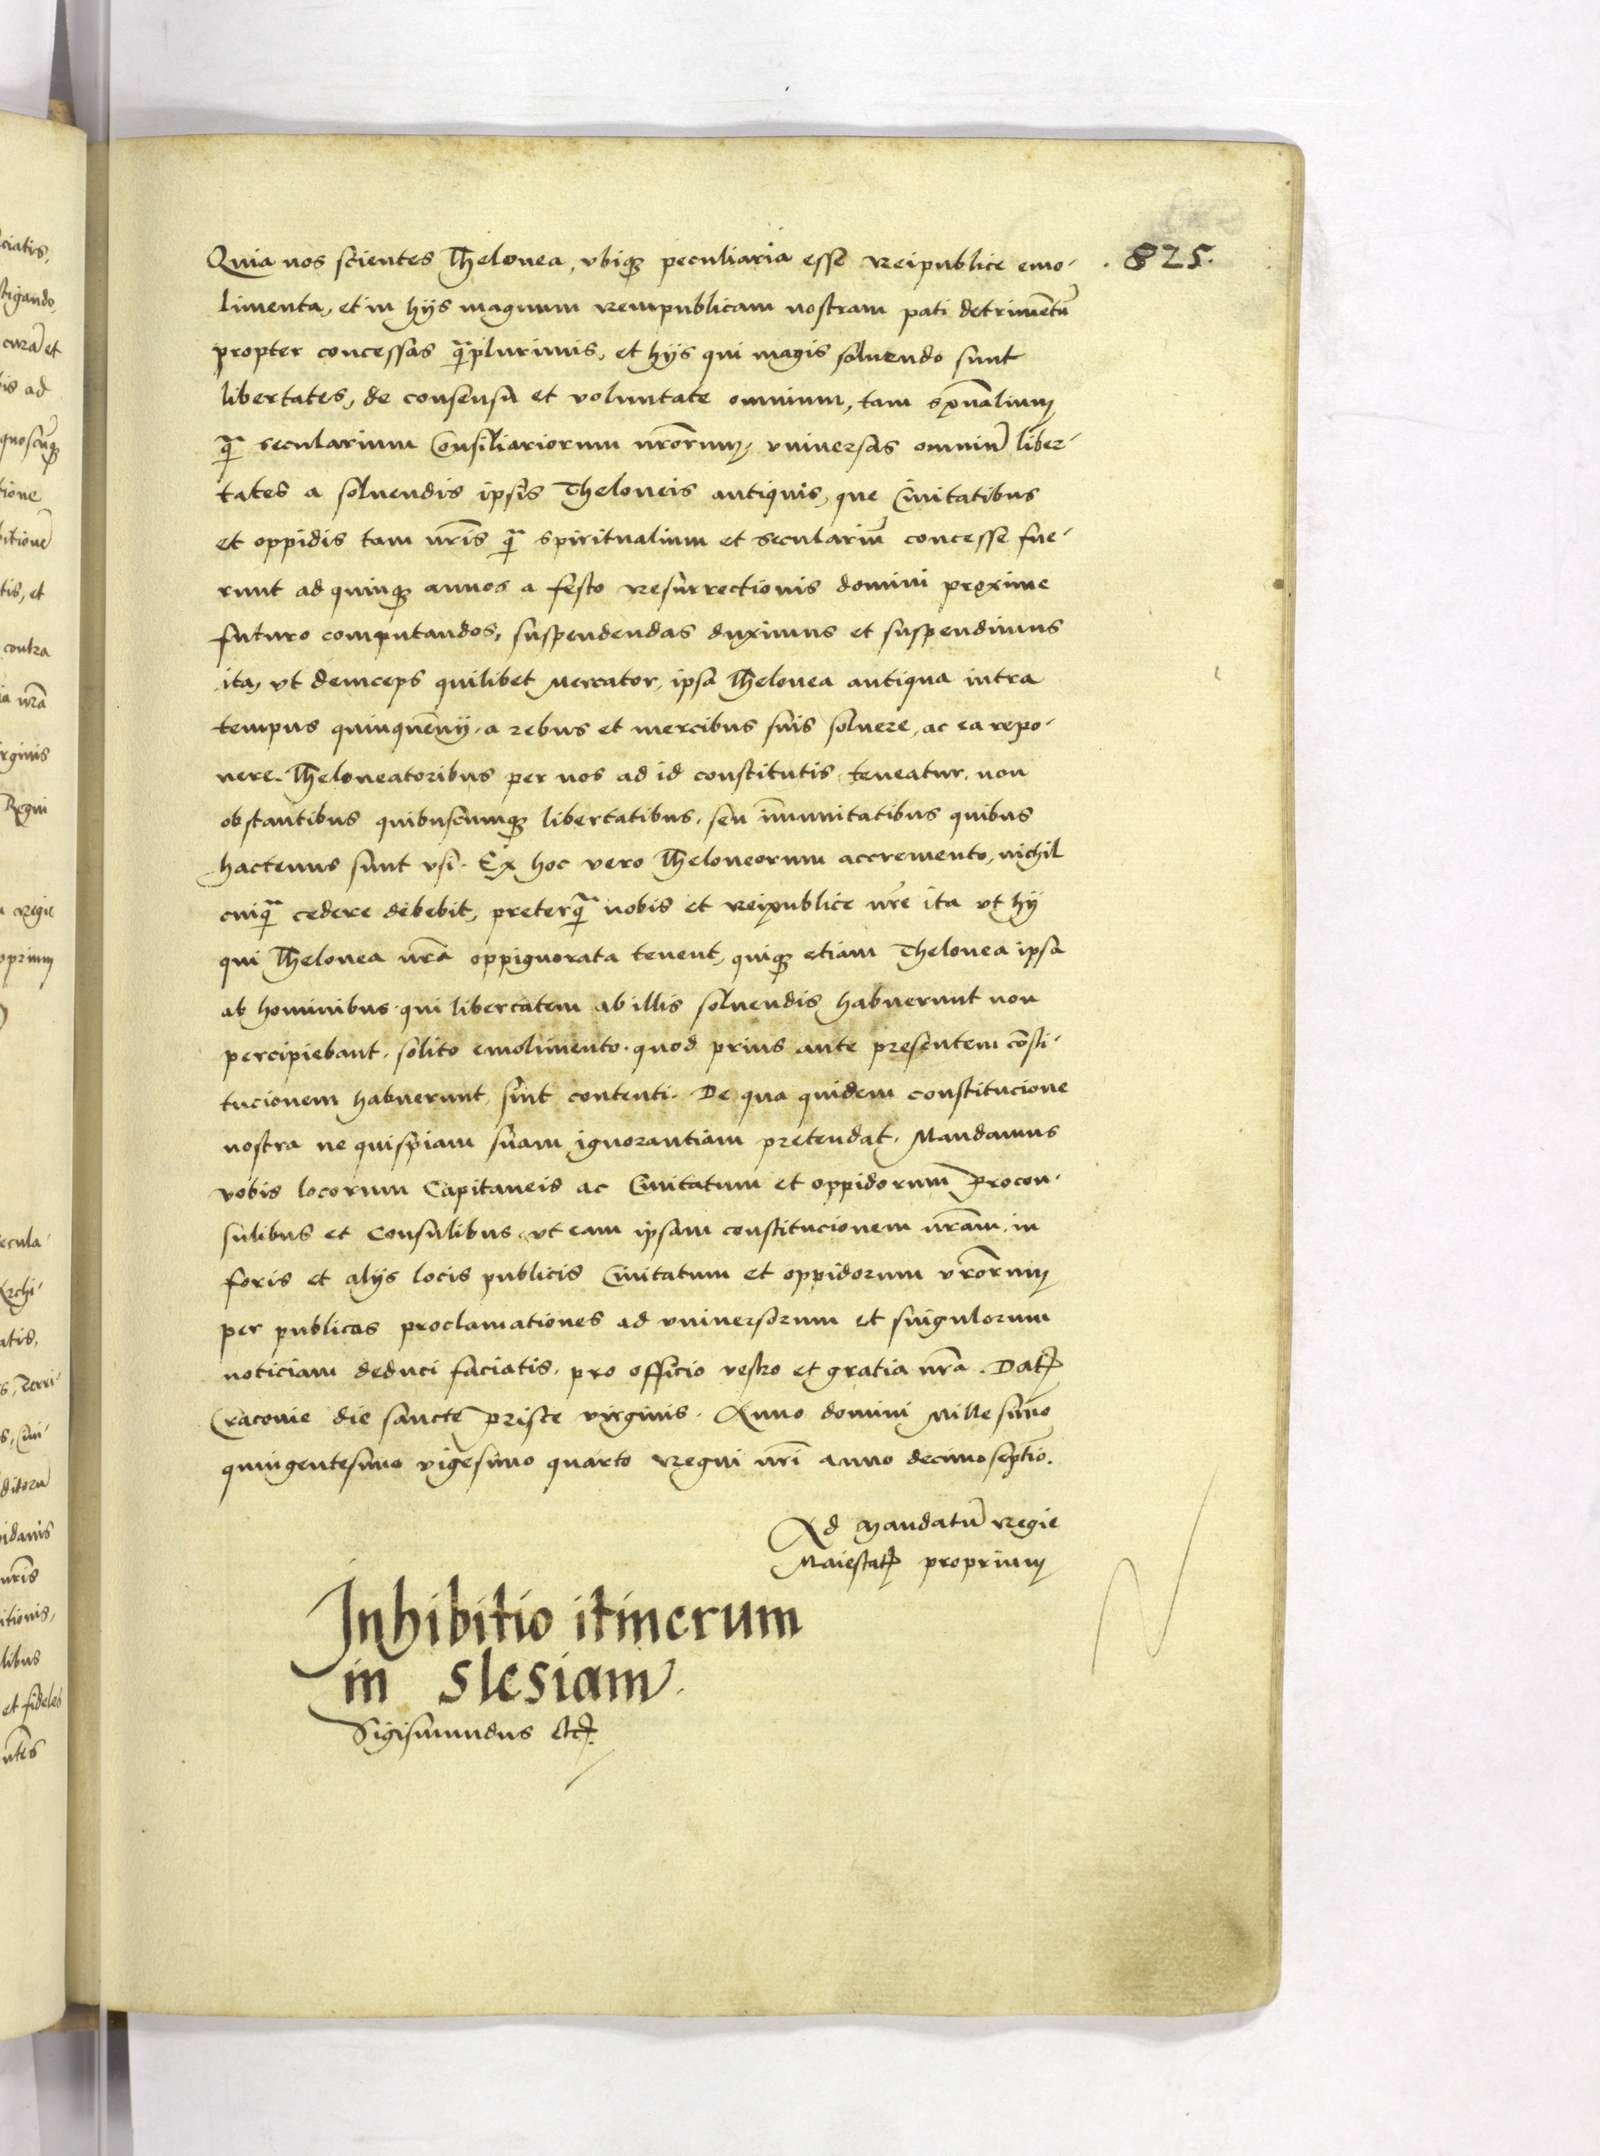 Quia nos scientes Thelonea, vbiqꝫ peculiaria esse Reipublice emo-
.825.
limenta, et in hijs magnum rempublicam nostram pati detrimentū
propter concessas qꝫplurimis, et hijs qui magis soluendo sunt
libertates, de consensu et voluntate omnium, tam spūalium
qꝫ secularium Consiliariorum nrōrum, vniuersas omniū liber-
tates a soluendis ipsis Theloneis antiquis, que Ciuitatibus
et oppidis tam nrīs qꝫ spiritualium et seculariū concesse fue-
runt ad quinqꝫ annos a festo Resurrectionis domini proxime
futuro computandos, suspendendas duximus et suspendimus
ita, vt deinceps quilibet Mercator, ipsa Thelonea antiqua intra
tempus quinquēnij. a rebus et mercibus suis soluere, ac ea repo-
nere. Theloneatoribus per nos ad id constitutis teneatur. non
obstantibus quibuscumqꝫ libertatibus, seu īmunitatibus quibus
hactenus sunt vsi. Ex hoc vero Theloneorum accremento, nichil
cuiqꝫ cedere debebit, preterqꝫ nobis et reipublice nrē ita vt hij
qui Thelonea nrā oppignorata tenent, quiqꝫ etiam Thelonea ipsa
ab hominibus. qui libertatem ab illis soluendis habuerunt non
percipiebant. solito emolimento. quod prius ante presentem cōsti-
tucionem habuerunt, sint contenti. De qua quidem constitucione
nostra ne quispiam suam ignorantiam pretendat. Mandamus
vobis locorum Capitaneis ac Ciuitatum et oppidorum Procon-
sulibus et Consulibus. vt eam ipsam constitucionem nrām. in
foris et alijs locis publicis Ciuitatum et oppidorum vrōrum
per publicas proclamationes ad vniuersorum et singulorum
noticiam deduci faciatis. pro officio vestro et gratia nrā. Datꝭ
Cracouie die sancte Prisce virginis. Anno domini Millesimo
quingentesimo vigesimo quarto Regni nrī anno decimoseptīo.
Ad Mandatū Regie
Maiestatꝭ proprium
Inhibitio itinerum
in Slesiam.
Sigismundus Etcꝭ.